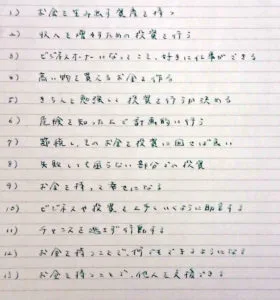 1) お金を生み出す資産を持つ
2) 収入を増やすための投資を行う
3) ビジネスオーナーになってこそ、好きに仕事ができる
4) 高い物を買えるお金を作る
5) きちんと勉強して投資を行うか決める
6) 危険を知った上で計画的に行動する
7) 節税し、そのお金を投資に回せば良い
8) 失敗しても困らない部分での投資
9) お金を持って幸せになる
10) ビジネスや投資を上手くいくように助言する
11) チャンスを逃さず行動する
12) お金を持つことで、何でもできるようになる
13) お金を持つことで、他人を支援できる